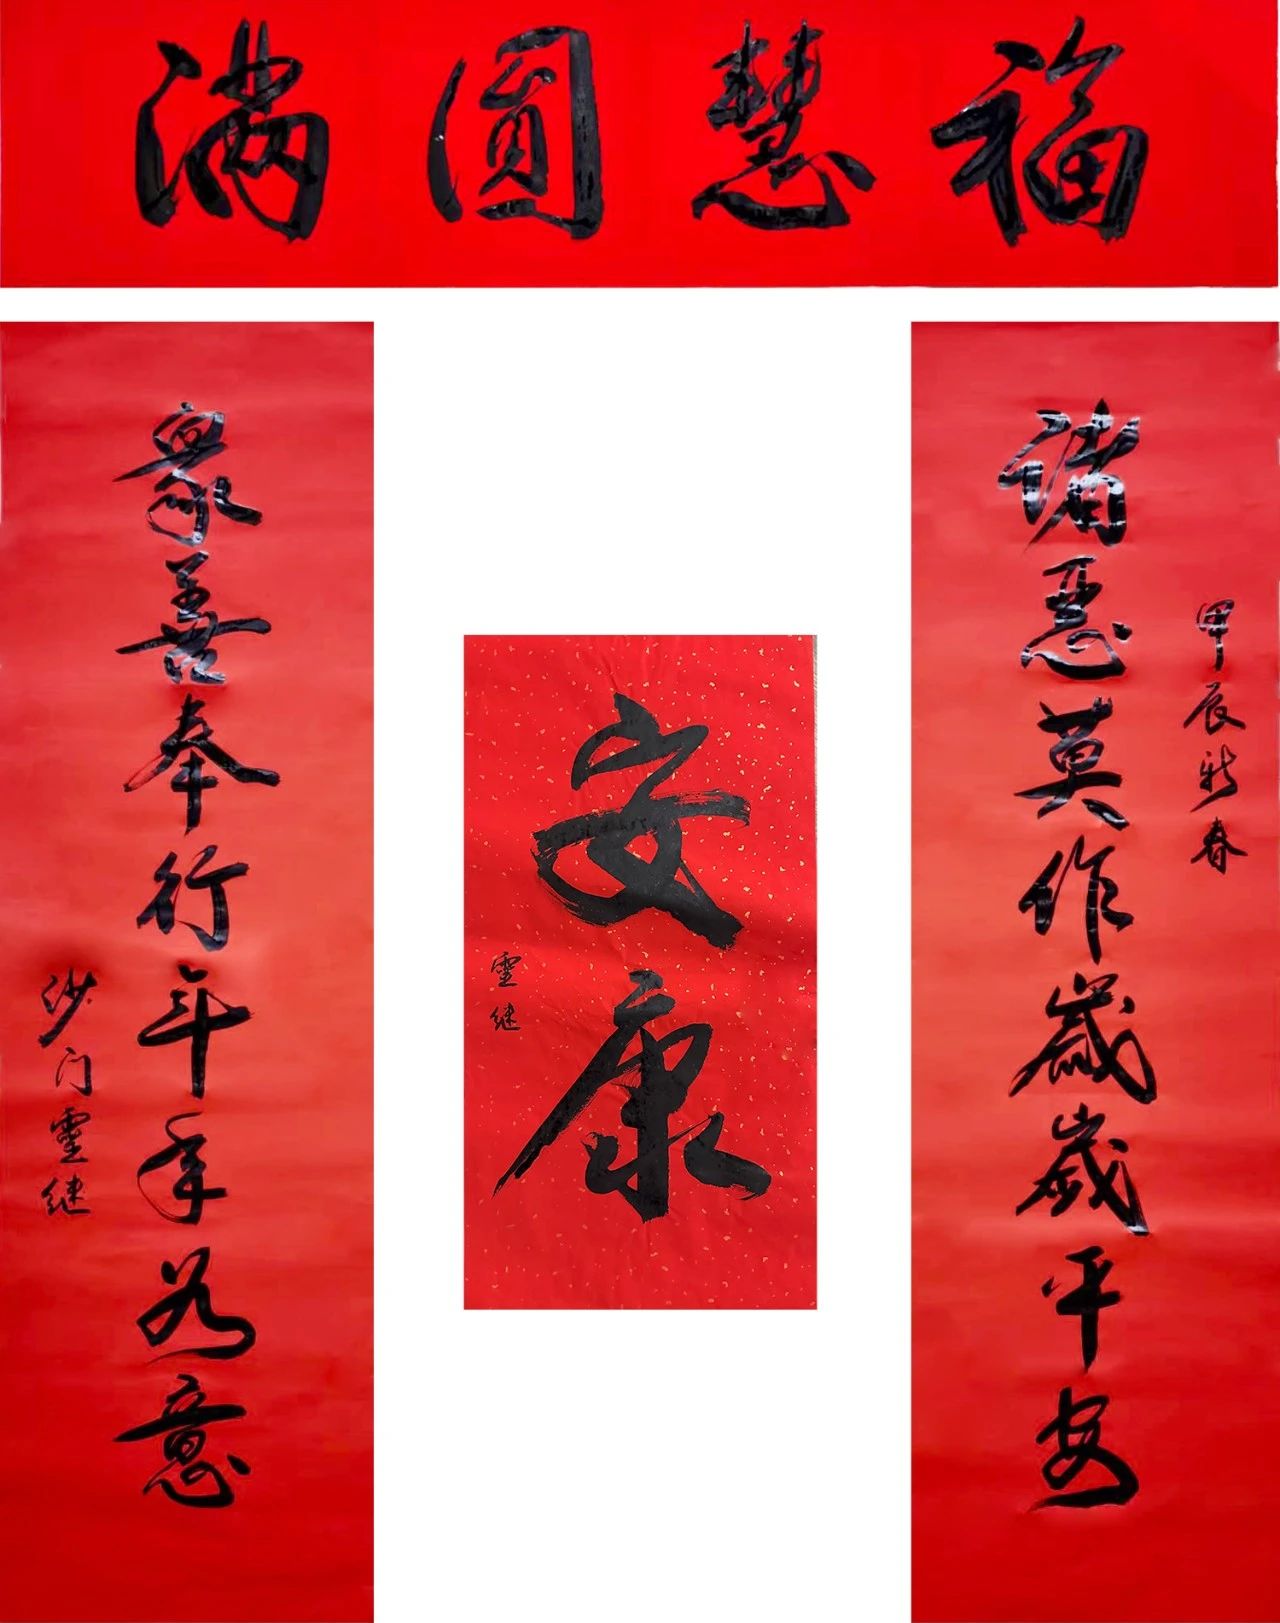 福慧圓滿
甲辰新春
諸惡莫作歲歲平安
眾善奉行年年如意
沙门靈继
安康
靈继